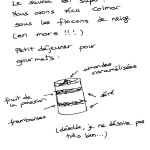 Le sauna est super
Nous avons vécu Colmar
sous les flocons de neige
(en mars !!!)
Petit déjeuner pour
gourmets :
amandes caramélisées
fruit de
la passion
framboises
(désolée, je ne dessine pas
très bien...)